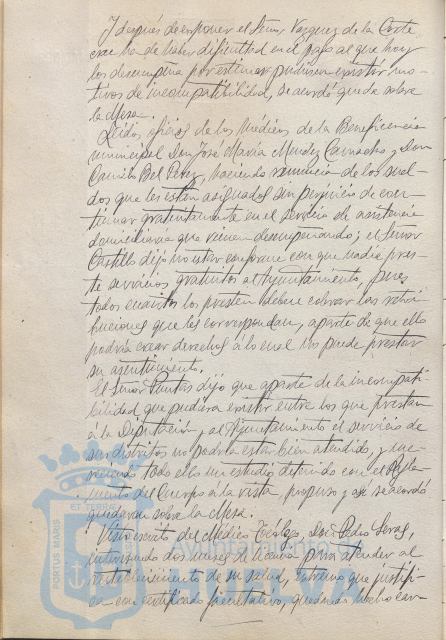 Y despues de exponer el Señor Vazquez de la Corte
cree ha de haber dificultad en el pago al que hoy
los desempeña por estimar pudieran existir mo-
tivos de incompatibilidad, se acordó quede sobre
la Mesa.
Leidos oficios de los Médicos de la Beneficencia
municipal Don José Maria Mendez Camacho y Don
Camilo Bel Perez, haciendo renuncia de los suel-
dos que les están asignados sin perjuicio de con-
tinuar gratuitamente en el servicio de asistencia
domiciliaria que vienen desempeñando; el Señor
Castillo dijo no estar conforme con que nadie pres-
te servicios gratuitos al Ayuntamiento, pues
todos cuantos los presten deben cobrar las retri-
buciones que les correspondan, aparte de que ello
podria crear derechos á lo cual no puede prestar
su asentimiento.
El Señor Puntas dijo que aparte de la incompati-
bilidad que pudiera existir entre los que prestan
á la Diputación y al Ayuntamiento el servicio de
sus distritos no podria estar bien atendido, y me-
reciendo todo ello un estudio detenido con el Regla-
mento del Cuerpo á la vista, propuso y asi se acordó
quedaran sobre la Mesa.
Visto escrito del Médico Don Pedro
interesando dos meses de licencia para atender al
restablecimiento de su salud, extremo que justifi-
ca con certificado facultativo,
PORTUS MARIS
ET TERRAE
Ayuntamiento
HUELVA